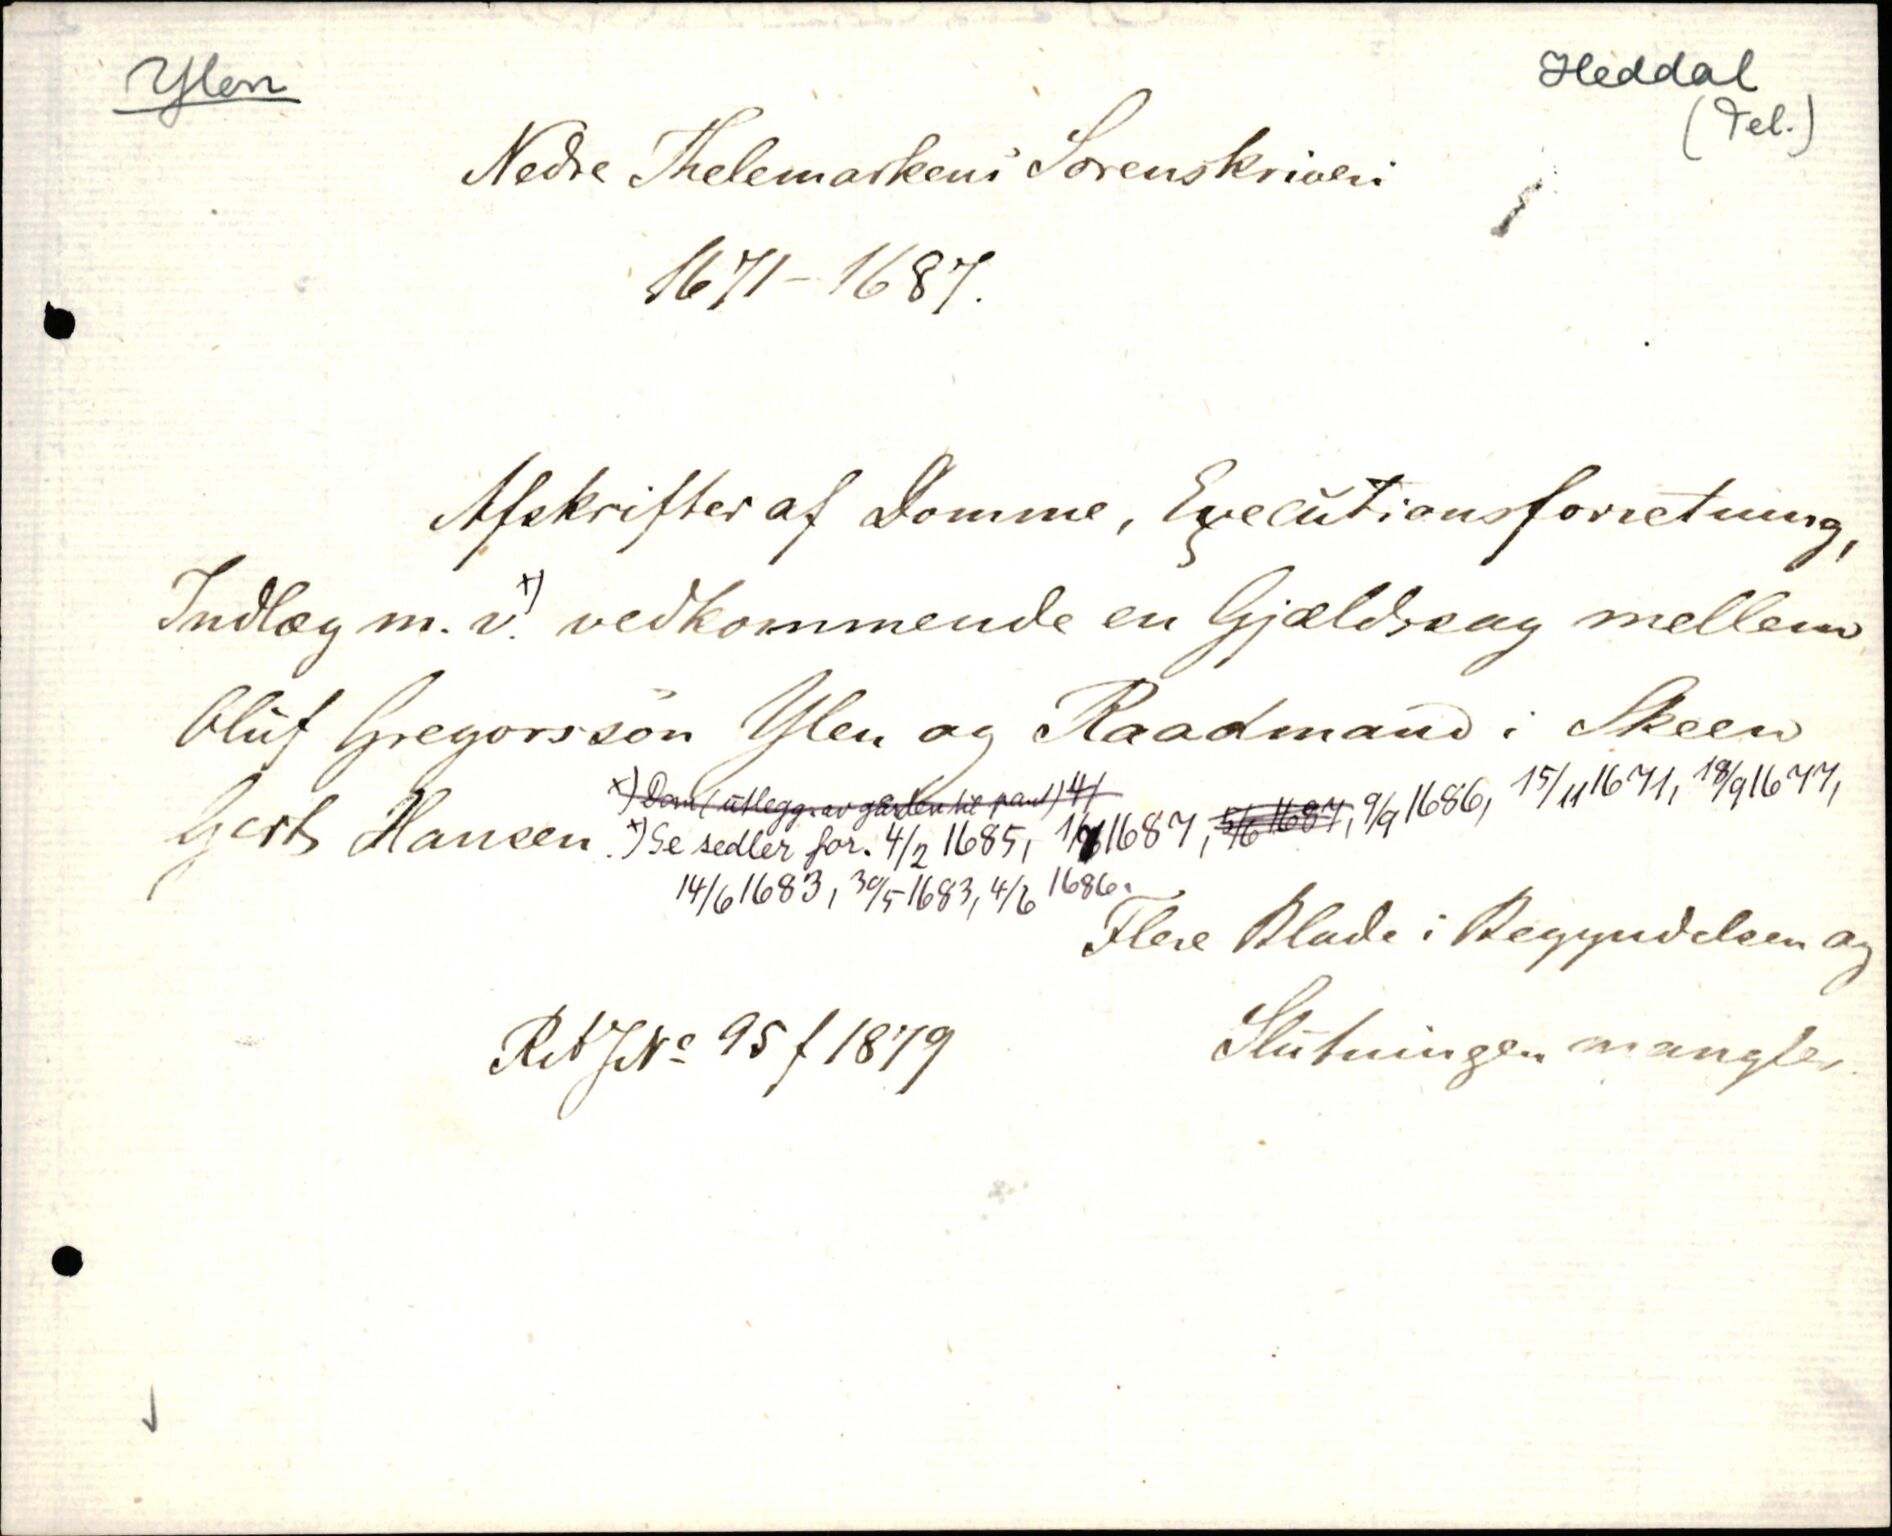 Ylen
Heddal
(Tel.)
Nedre Thelemarkens Sorenskriveri
1671-1687.
Afskrifter af Domme, Executionsforretning,
Indlæg m. v. x) vedkommende en Gjældssag mellem
Oluf Gregorssøn Ylen og Raadmand i Skeen
Gert Hansen.
x) Dom (utlegg av gården til pant) 4/
x) Se sedler for. 4/2 1685, 1687, 5/6 1687, 9/9 1686, 15/11 1671, 18/9 1677,
14/6 1683, 30/5 1683, 4/6 1686.
Flere Blade i Begyndelsen og
Slutningen mangler.
RA J No 95 f 1879